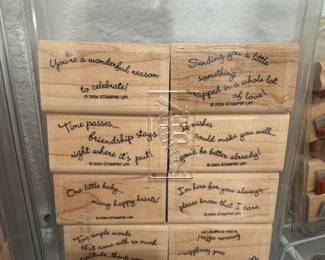 You're a wonderful reason
to celebrate!
© 2004 STAMPIN' UP!
Sending you a little
something
wrapped in a whole lot
of love!
© 2004 STAMPIN' UP!
Time passes...
friendship stays
right where it's put!
© 2004 STAMPIN' UP!
If wishes
could make you well...
you'd be better already!
© 2004 STAMPIN' UP!
One little baby...
many happy hearts!
© 2004 STAMPIN' UP!
I'm here for you always...
please know that I care.
© 2004 STAMPIN' UP!
Two simple words
that come with so much
gratitude, thank you